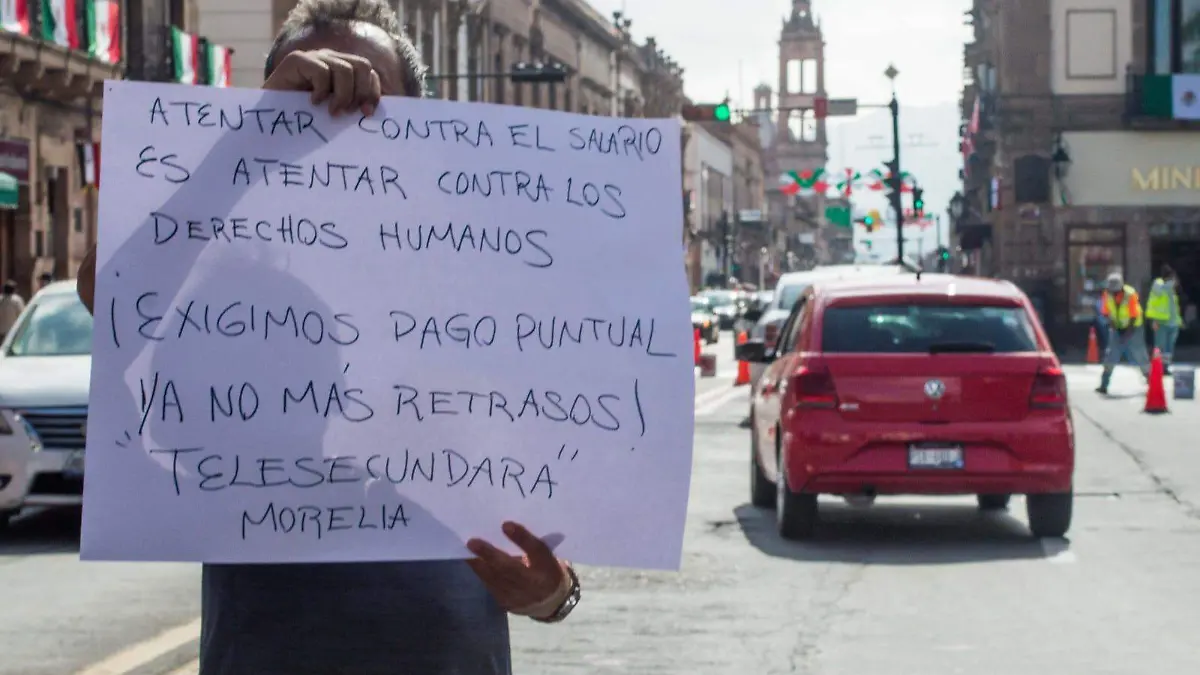 ATENTAR CONTRA EL SALARIO
ES ATENTAR CONTRA LOS
DERECHOS HUMANOS
¡EXIGIMOS PAGO PUNTUAL
YA NO MÁS RETRASOS!
"TELESECUNDARA"
MORELIA
MIN